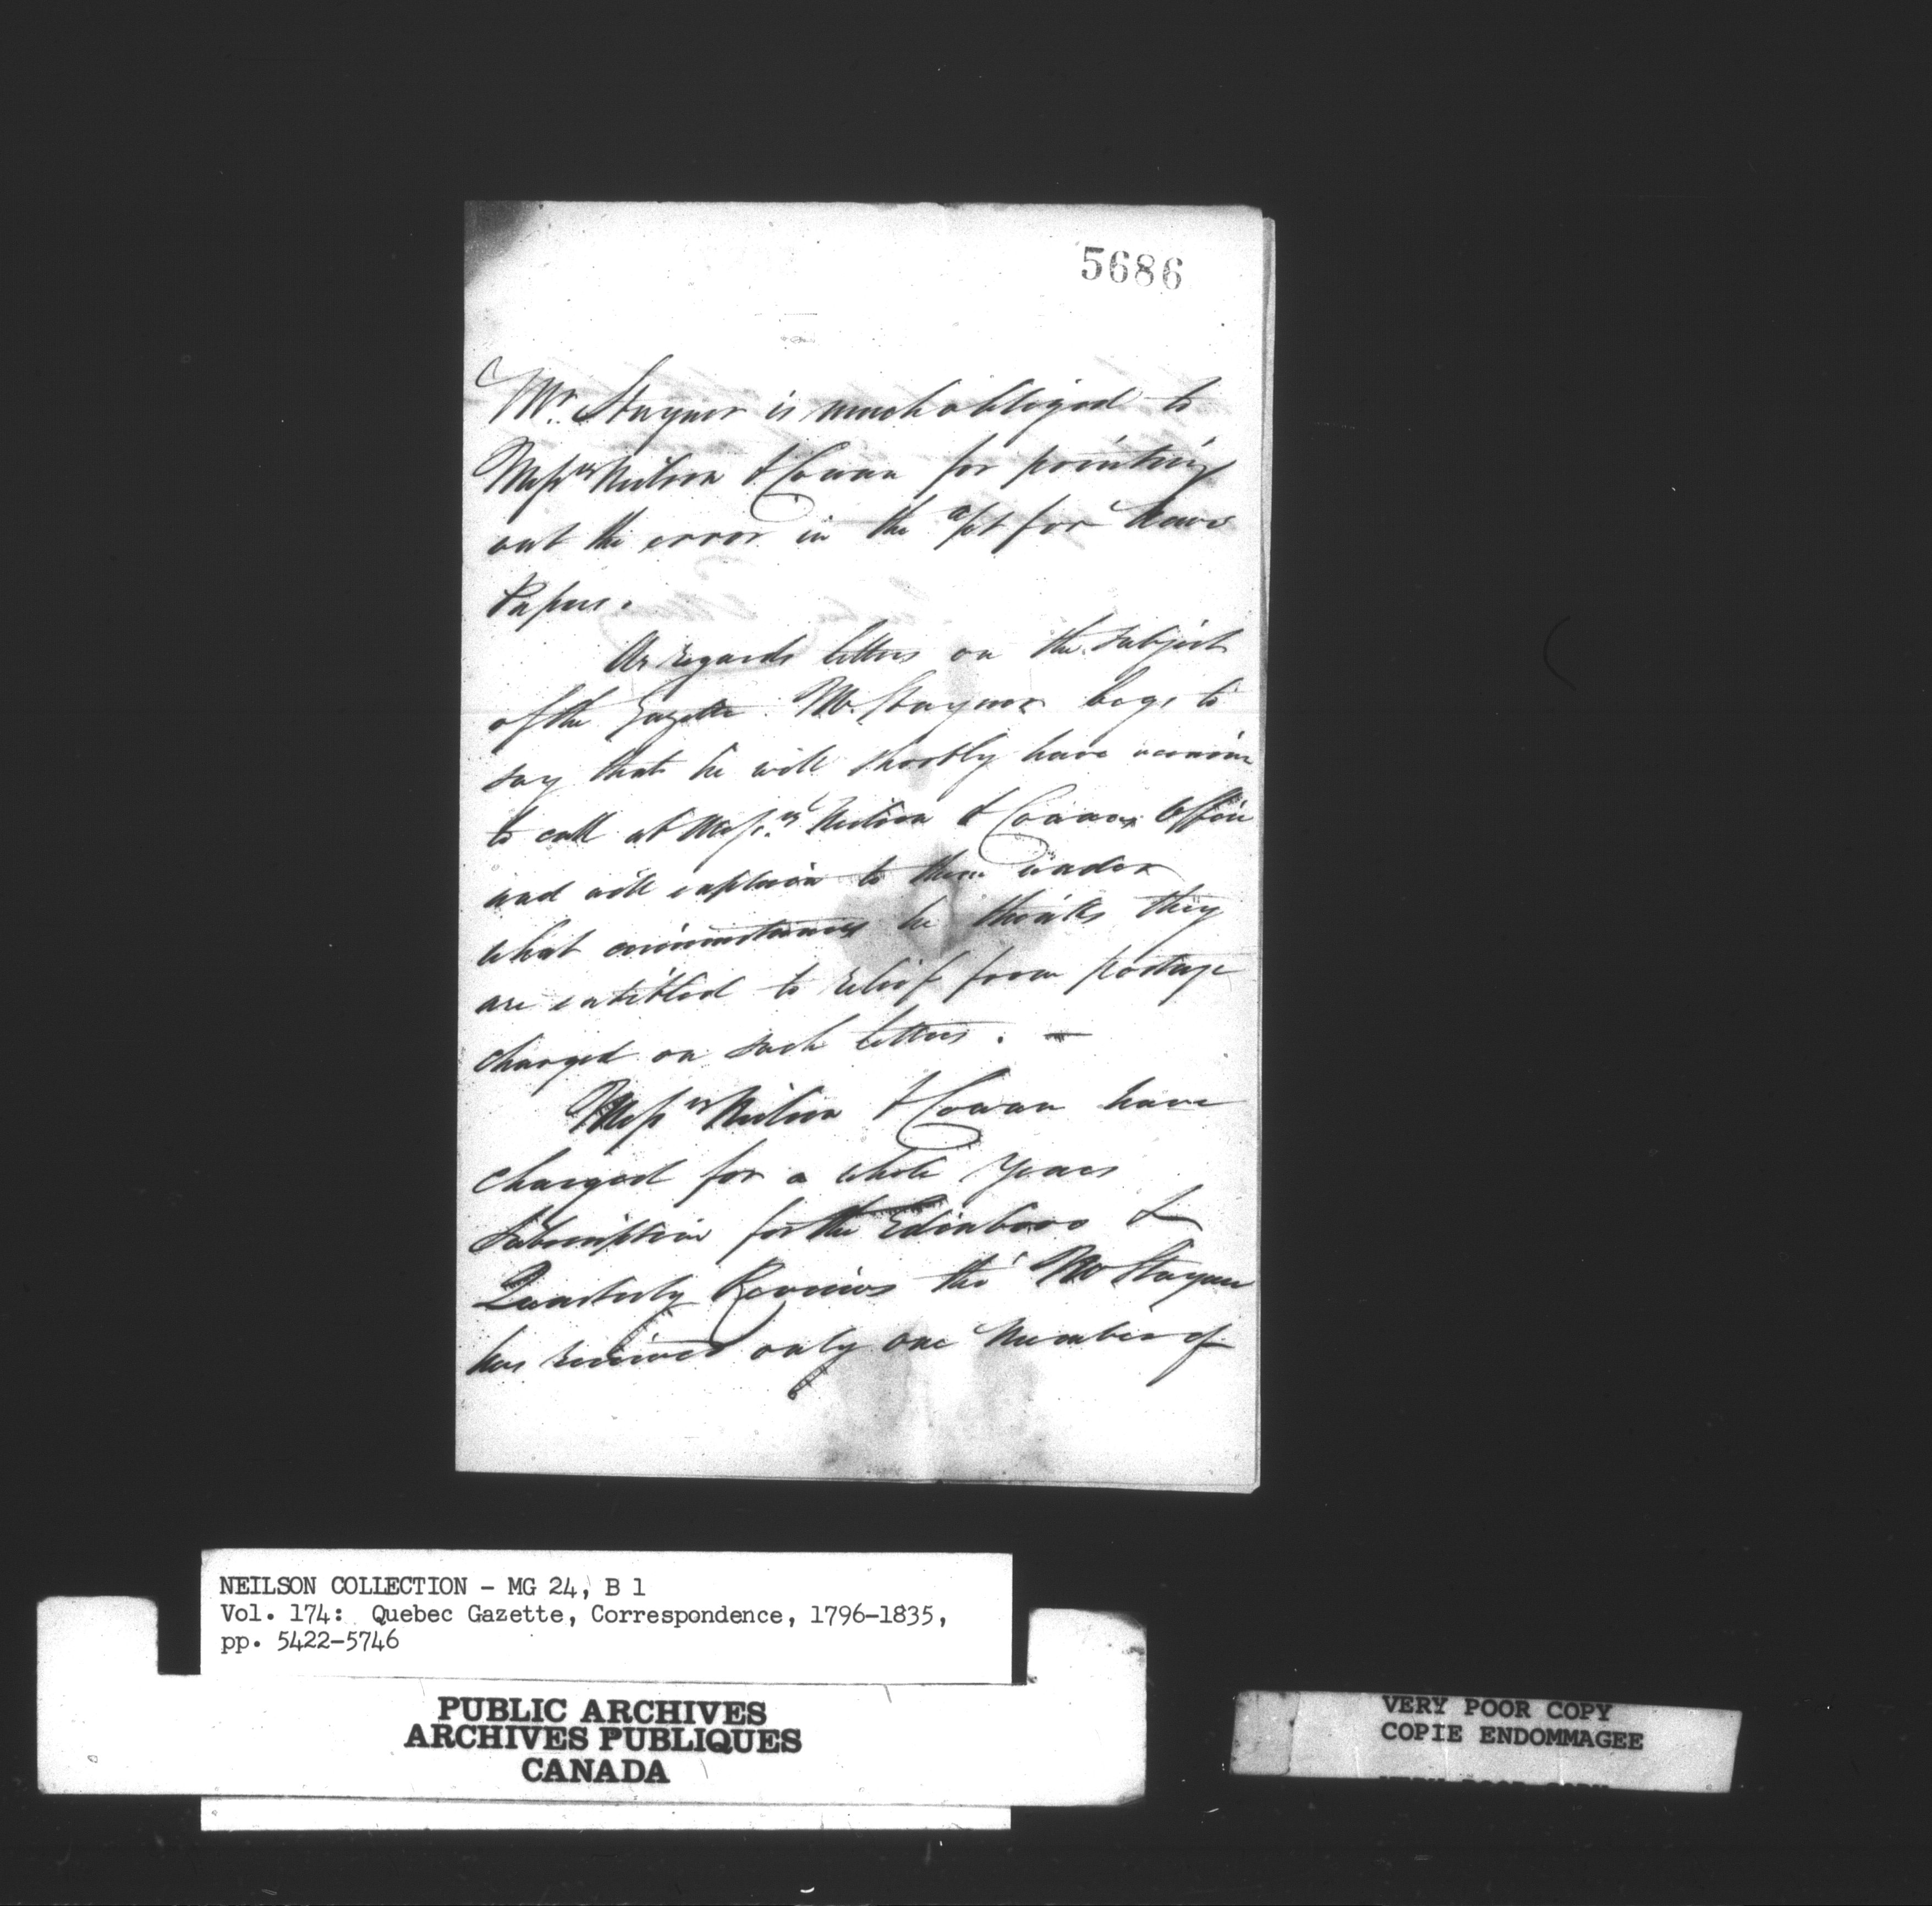 5686
Mr. Stayner is much obliged to
Messrs Neilson & Cowan for pointing
out the error in the a/ct for News
Papers.
As regards letters on the subject
of the Gazette Mr Stayner begs to
say that he will shortly have occasion
to call at Messrs Neilson & Cowans Office
and will explain to them under
what circumstances he thinks they
are entitled to relief from postage
charged on such letters. —
Messrs Neilson & Cowan have
charged for a whole Years
Subscription for the Edinboro &
Quarterly Reviews tho' Mr Stayner
has received only one Number of
NEILSON COLLECTION - MG 24, B 1
Vol. 174: Quebec Gazette, Correspondence, 1796-1835,
pp. 5422-5746
PUBLIC ARCHIVES
ARCHIVES PUBLIQUES
CANADA
VERY POOR COPY
COPIE ENDOMMAGEE